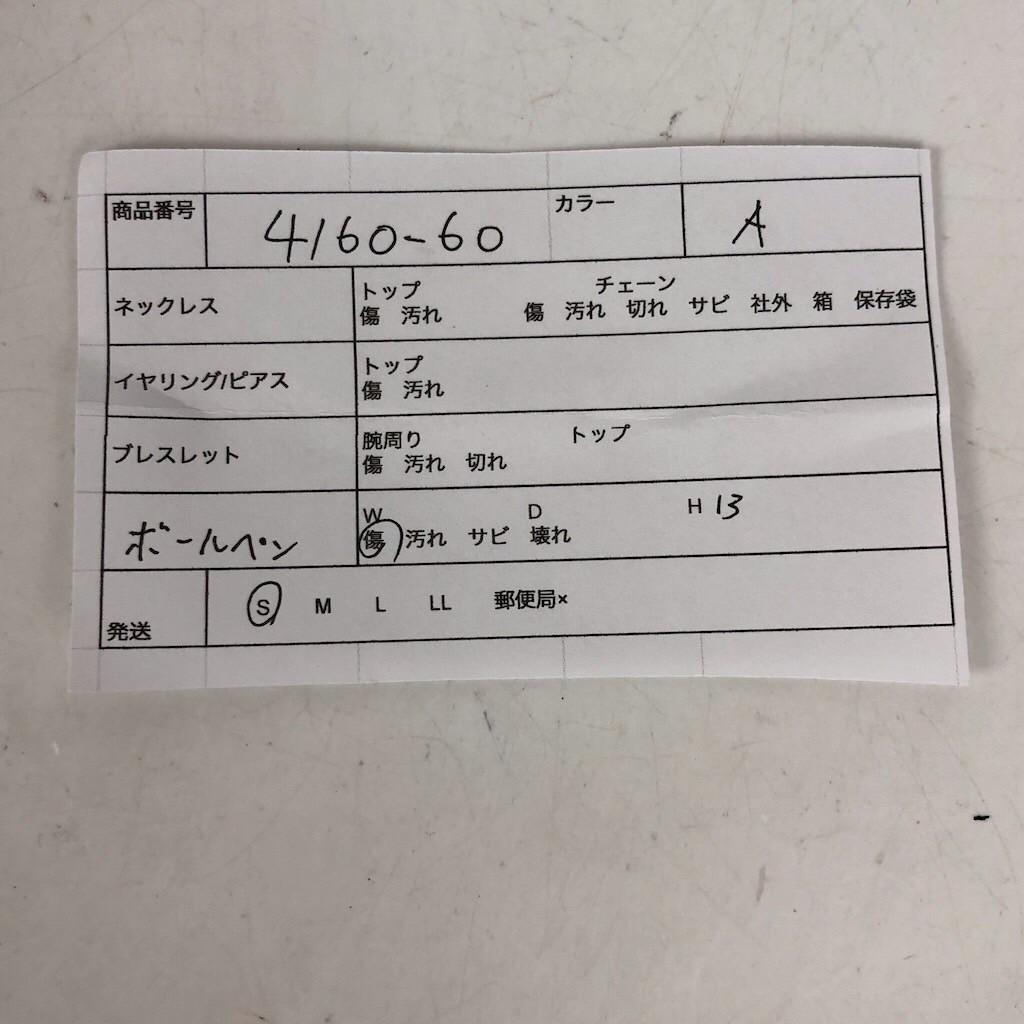 商品番号 4160-60 カラー A
ネックレス トップ チェーン
傷 汚れ 傷 汚れ 切れ サビ 社外 箱 保存袋
イヤリング/ピアス トップ
傷 汚れ
ブレスレット 腕周り トップ
傷 汚れ 切れ
ボールペン W D H 13
傷 汚れ サビ 壊れ
発送 S M L LL 郵便局×